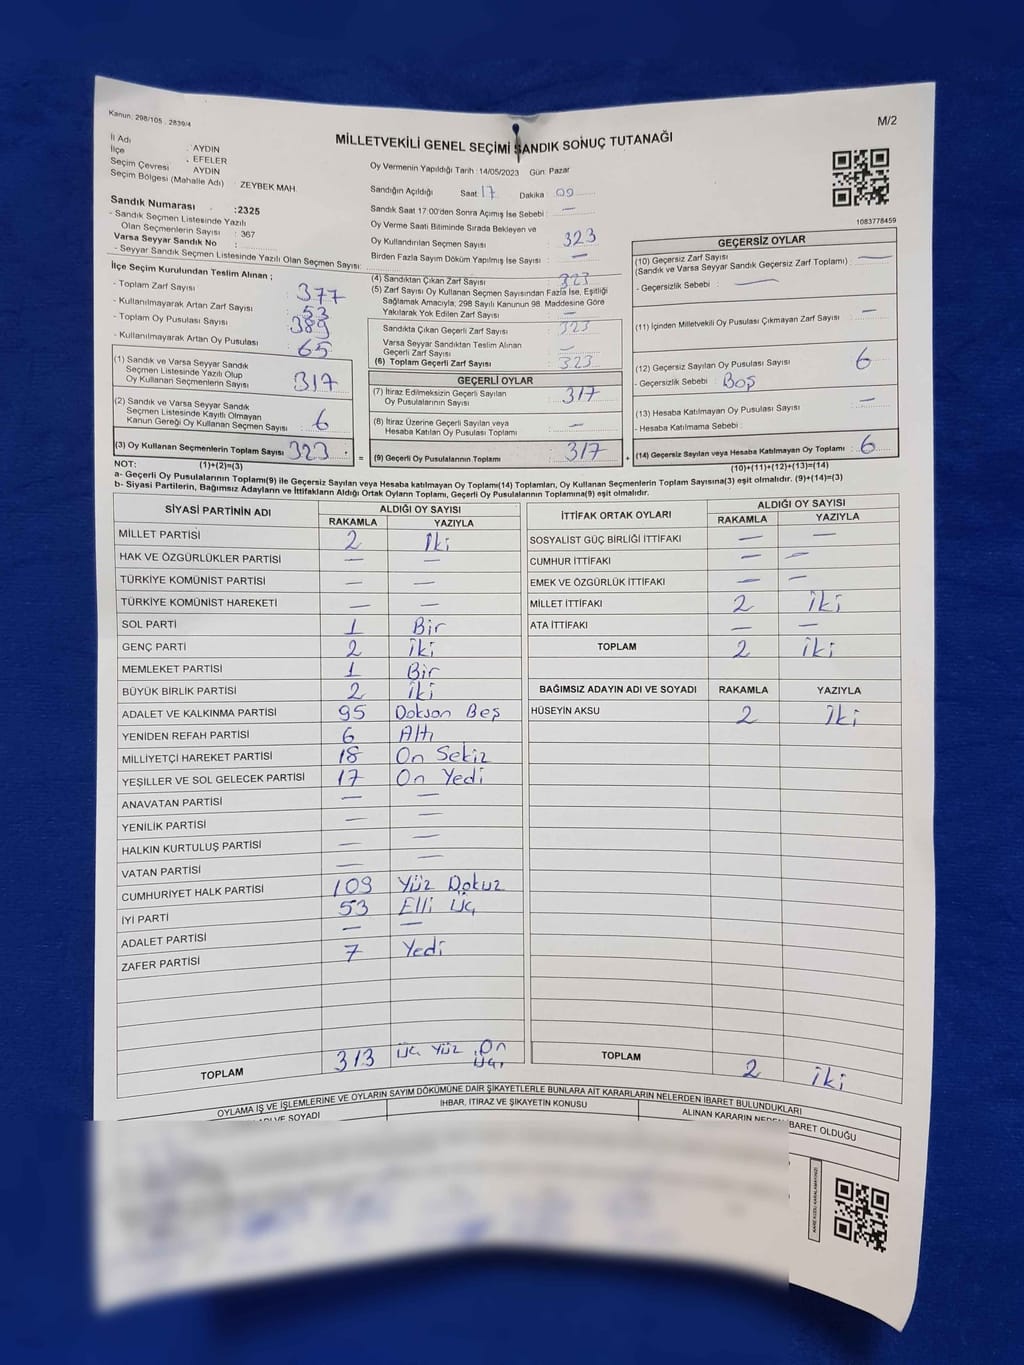 Kanun: 298/105 , 2839/4
M/2
MİLLETVEKİLİ GENEL SEÇİMİ SANDIK SONUÇ TUTANAĞI
İl Adı : AYDIN
İlçe : EFELER
Seçim Çevresi AYDIN
Seçim Bölgesi (Mahalle Adı) : ZEYBEK MAH.
Sandık Numarası :2325
- Sandık Seçmen Listesinde Yazılı
Olan Seçmenlerin Sayısı : 367
Varsa Seyyar Sandık No :
- Seyyar Sandık Seçmen Listesinde Yazılı Olan Seçmen Sayısı:
İlçe Seçim Kurulundan Teslim Alınan ;
- Toplam Zarf Sayısı : 377
- Kullanılmayarak Artan Zarf Sayısı : 53
- Toplam Oy Pusulası Sayısı : 389
- Kullanılmayarak Artan Oy Pusulası : 65
(1) Sandık ve Varsa Seyyar Sandık
Seçmen Listesinde Yazılı Olup
Oy Kullanan Seçmenlerin Sayısı : 317
(2) Sandık ve Varsa Seyyar Sandık
Seçmen Listesinde Kayıtlı Olmayan
Kanun Gereği Oy Kullanan Seçmen Sayısı : 6
(3) Oy Kullanan Seçmenlerin Toplam Sayısı : 323
Oy Vermenin Yapıldığı Tarih : 14/05/2023 Gün: Pazar
Sandığın Açıldığı Saat : 17 Dakika : 00
Sandık Saat 17:00'den Sonra Açılmış İse Sebebi : —
Oy Verme Saati Bitiminde Sırada Bekleyen ve
Oy Kullandırılan Seçmen Sayısı : 323
Birden Fazla Sayım Döküm Yapılmış İse Sayısı : —
(4) Sandıktan Çıkan Zarf Sayısı : 323
(5) Zarf Sayısı Oy Kullanan Seçmen Sayısından Fazla İse, Eşitliği
Sağlamak Amacıyla; 298 Sayılı Kanunun 98. Maddesine Göre
Yakılarak Yok Edilen Zarf Sayısı : —
Sandıkta Çıkan Geçerli Zarf Sayısı : 323
Varsa Seyyar Sandıktan Teslim Alınan
Geçerli Zarf Sayısı : —
(6) Toplam Geçerli Zarf Sayısı : 323
GEÇERLİ OYLAR
(7) İtiraz Edilmeksizin Geçerli Sayılan
Oy Pusulalarının Sayısı : 317
(8) İtiraz Üzerine Geçerli Sayılan veya
Hesaba Katılan Oy Pusulaları Toplamı : —
= (9) Geçerli Oy Pusulalarının Toplamı : 317 +
1083778459
GEÇERSİZ OYLAR
(10) Geçersiz Zarf Sayısı
(Sandık ve Varsa Seyyar Sandık Geçersiz Zarf Toplamı) : —
- Geçersizlik Sebebi : —
(11) İçinden Milletvekili Oy Pusulası Çıkmayan Zarf Sayısı : —
(12) Geçersiz Sayılan Oy Pusulası Sayısı : 6
- Geçersizlik Sebebi : Boş
(13) Hesaba Katılmayan Oy Pusulası Sayısı : —
- Hesaba Katılmama Sebebi :
(14) Geçersiz Sayılan veya Hesaba Katılmayan Oy Toplamı : 6
NOT: (1)+(2)=(3)
(10)+(11)+(12)+(13)=(14)
a- Geçerli Oy Pusulalarının Toplamı(9) ile Geçersiz Sayılan veya Hesaba katılmayan Oy Toplamı(14) Toplamları, Oy Kullanan Seçmenlerin Toplam Sayısına(3) eşit olmalıdır. (9)+(14)=(3)
b- Siyasi Partilerin, Bağımsız Adayların ve İttifakların Aldığı Ortak Oyların Toplamı, Geçerli Oy Pusulalarının Toplamına(9) eşit olmalıdır.
SİYASİ PARTİNİN ADI ALDIĞI OY SAYISI
RAKAMLA YAZIYLA
MİLLET PARTİSİ 2 İki
HAK VE ÖZGÜRLÜKLER PARTİSİ — —
TÜRKİYE KOMÜNİST PARTİSİ — —
TÜRKİYE KOMÜNİST HAREKETİ — —
SOL PARTİ 1 Bir
GENÇ PARTİ 2 İki
MEMLEKET PARTİSİ 1 Bir
BÜYÜK BİRLİK PARTİSİ 2 İki
ADALET VE KALKINMA PARTİSİ 95 Doksan Beş
YENİDEN REFAH PARTİSİ 6 Altı
MİLLİYETÇİ HAREKET PARTİSİ 18 On Sekiz
YEŞİLLER VE SOL GELECEK PARTİSİ 17 On Yedi
ANAVATAN PARTİSİ — —
YENİLİK PARTİSİ — —
HALKIN KURTULUŞ PARTİSİ — —
VATAN PARTİSİ — —
CUMHURİYET HALK PARTİSİ 109 Yüz Dokuz
İYİ PARTİ 53 Elli Üç
ADALET PARTİSİ — —
ZAFER PARTİSİ 7 Yedi
TOPLAM 313 Üç Yüz On
Üç
İTTİFAK ORTAK OYLARI ALDIĞI OY SAYISI
RAKAMLA YAZIYLA
SOSYALİST GÜÇ BİRLİĞİ İTTİFAKI — —
CUMHUR İTTİFAKI — —
EMEK VE ÖZGÜRLÜK İTTİFAKI — —
MİLLET İTTİFAKI 2 İki
ATA İTTİFAKI — —
TOPLAM 2 İki
BAĞIMSIZ ADAYIN ADI VE SOYADI RAKAMLA YAZIYLA
HÜSEYİN AKSU 2 İki
TOPLAM 2 İki
OYLAMA İŞ VE İŞLEMLERİNE VE OYLARIN SAYIM DÖKÜMÜNE DAİR ŞİKAYETLERLE BUNLARA AİT KARARLARIN NELERDEN İBARET BULUNDUKLARI
VE SOYADI İHBAR, İTİRAZ VE ŞİKAYETİN KONUSU ALINAN KARARIN NEDEN İBARET OLDUĞU